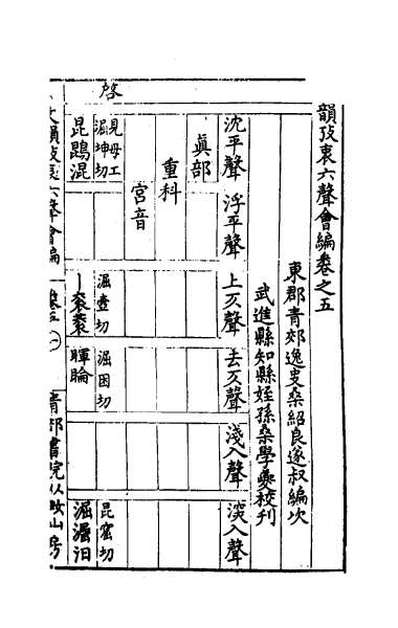 韻攷衷六聲會編卷之五
東郡青郊逸叟桑紹良遂叔編次
武進縣知縣姪孫桑學夔校刊
沈平聲 浮平聲 上仄聲 去仄聲 淺入聲 深入聲
眞部
重科
宮音
啓
見母工
淈坤切 淈壼切 淈困切 昆窟切
昆鵾混 丨衮蓘 睴睔 淈㴾汩
文韻攷衷六聲會編 卷五 一 青郊書院以